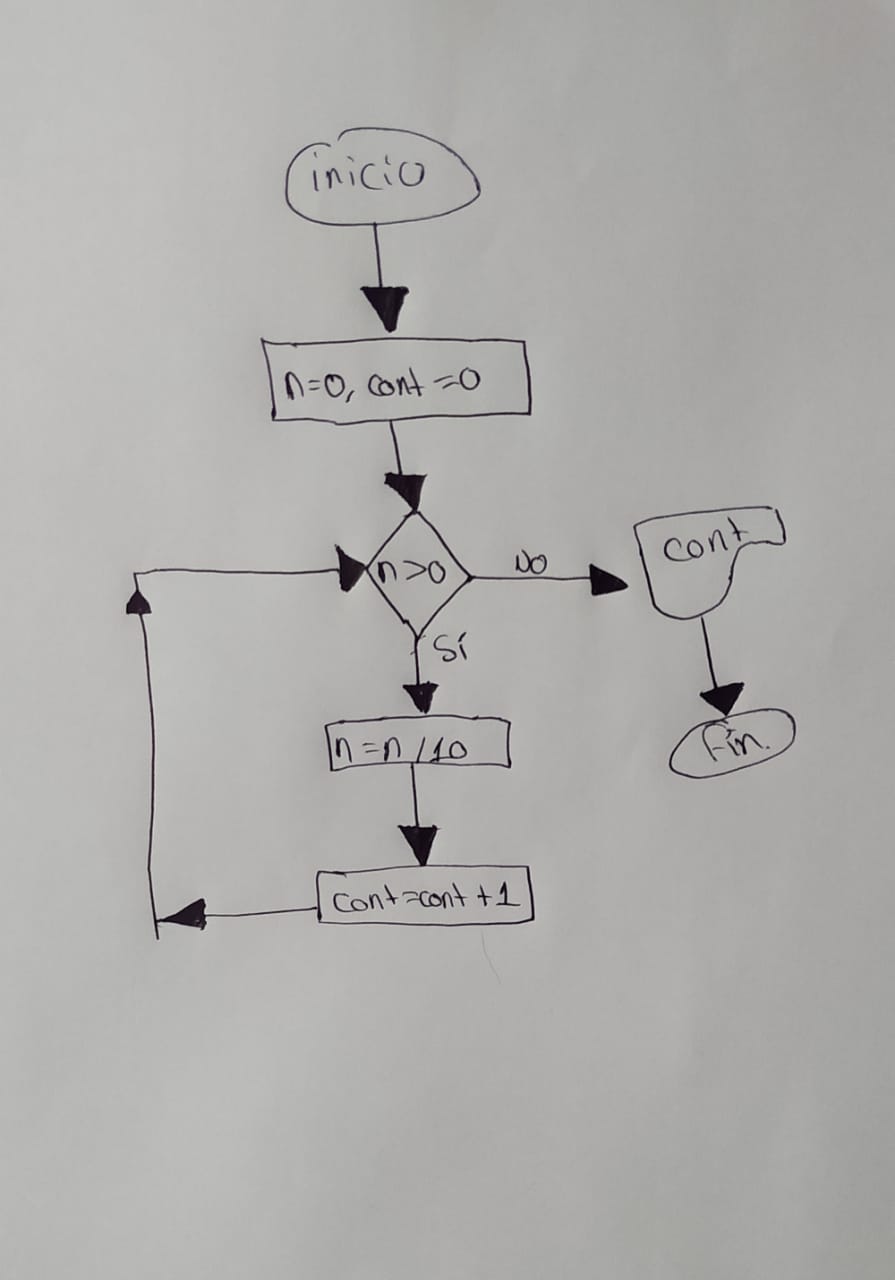 inicio
n=0, cont=0
n>0
No
cont
Sí
n=n/10
Fin.
cont=cont+1